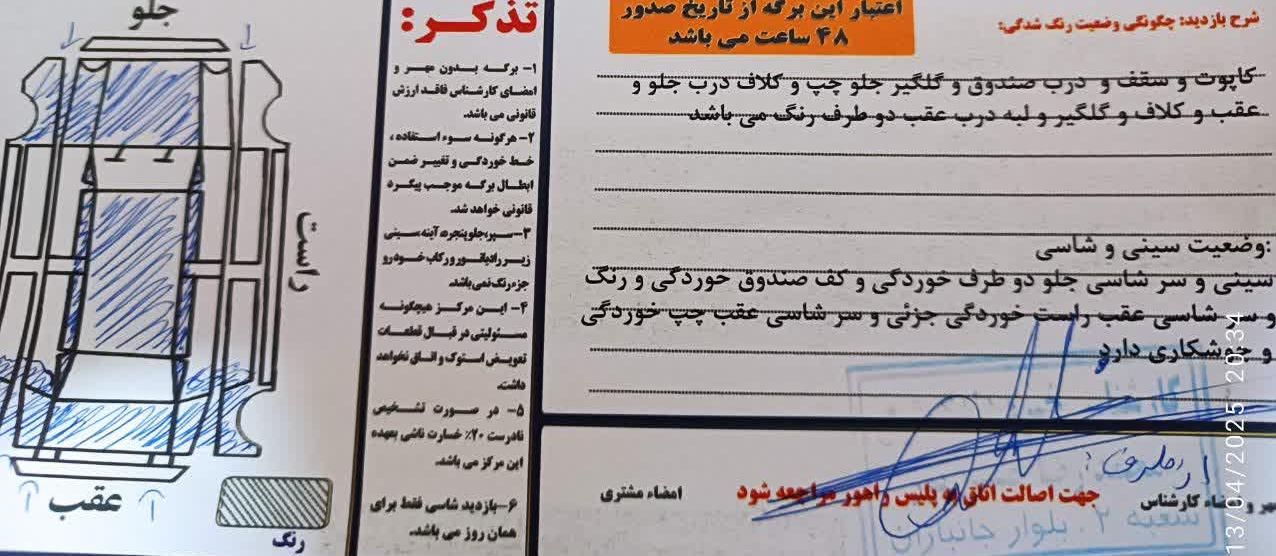 شرح بازدید: چگونگی وضعیت رنگ شدگی:
اعتبار این برگه از تاریخ صدور
۴۸ ساعت می باشد
کاپوت و سقف و درب صندوق و گلگیر جلو چپ و کلاف درب جلو و
عقب و کلاف و گلگیر و لبه درب عقب دو طرف رنگ می باشد
وضعیت سینی و شاسی:
سینی و سر شاسی جلو دو طرف خوردگی و کف صندوق خوردگی و رنگ
و سر شاسی عقب راست خوردگی جزئی و سر شاسی عقب چپ خوردگی
و جوشکاری دارد
جهت اصالت اتاق به پلیس راهور مراجعه شود
امضاء کارشناس
امضاء مشتری
شعبه ۲ . بلوار جانبازان
تذکر:
۱- برگه بدون مهر و
امضای کارشناس فاقد ارزش
قانونی می باشد.
۲- هرگونه سوء استفاده ،
خط خوردگی و تغییر ضمن
ابطال برگه موجب پیگرد
قانونی خواهد شد.
۳-سپر، جلوپنجره، آینه، سینی
زیر رادیاتور و رکاب خودرو
جزء رنگ نمی باشد.
۴- این مرکز هیچگونه
مسئولیتی در قبال قطعات
تعویض استوک و اتاق نخواهد
داشت.
۵- در صورت تشخیص
نادرست ۲۰٪ خسارت ناشی بعهده
این مرکز می باشد.
۶-بازدید شاسی فقط برای
همان روز می باشد.
جلو
راست
عقب
رنگ
13/04/2025 20:34